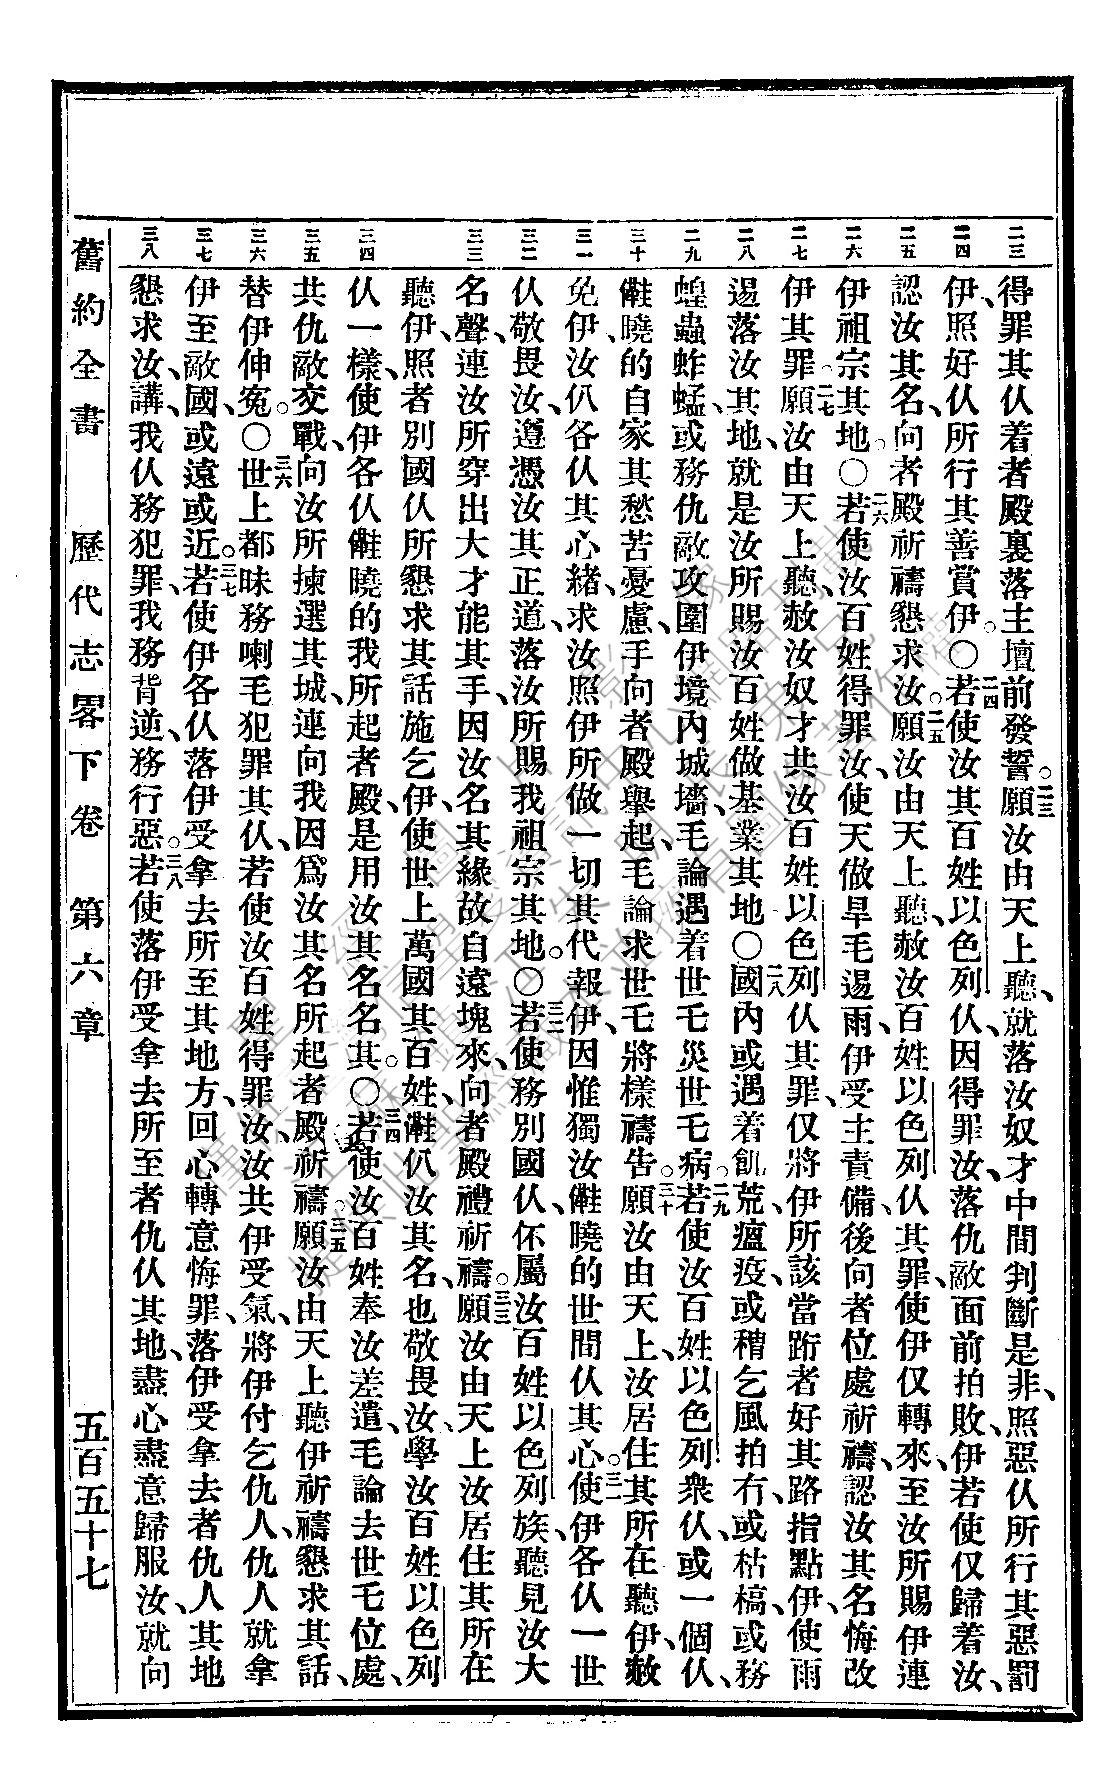 得罪其仈着者殿裏落主壇前發誓。二三願汝由天上聽、就落汝奴才中間判斷是非、照惡仈所行其惡罰
伊、照好仈所行其善賞伊。〇二四若使汝其百姓以色列仈、因得罪汝、落仇敵面前拍敗、伊若使仅歸着汝、
認汝其名、向者殿祈禱懇求汝。二五願汝由天上聽、赦汝百姓以色列仈其罪、使伊仅轉來、至汝所賜伊連
伊祖宗其地。〇二六若使汝百姓得罪汝、使天做旱毛逿雨、伊受主責備、後向者位處祈禱、認汝其名、悔改
伊其罪。二七願汝由天上聽、赦汝奴才共汝百姓以色列仈其罪、仅將伊所該當跱者好其路指點伊、使雨
逿落汝其地、就是汝所賜汝百姓做基業其地。〇二八國內或遇着飢荒、瘟疫、或𥢶乞風拍冇、或枯槁、或務
蝗蟲蚱蜢、或務仇敵攻圍伊境內城墻、毛論遇着世毛災世毛病。二九若使汝百姓以色列衆仈、或一個仈、
𪜶曉的自家其愁苦憂慮、手向者殿舉起、毛論求世毛將樣禱告。三十願汝由天上、汝居住其所在聽伊、赦
免伊、汝仈各仈其心緒、求汝照伊所做一切其代報伊、因惟獨汝曉的世間仈其心。三一使伊各仈一世
仈敬畏汝、遵憑汝其正道、落汝所賜我祖宗其地。〇三二若使務別國仈、伓屬汝百姓以色列族、聽見汝大
名聲、連汝所穿出大才能其手、因汝名其緣故、自遠塊來、向者殿禮祈禱。三三願汝由天上汝居住其所在
聽伊、照者別國仈所懇求其話施乞伊、使世上萬國其百姓、仈汝其名、也敬畏汝、學汝百姓以色列
仈一樣、使伊各仈曉的我所起者殿、是用汝其名名其。〇三四若使汝百姓奉汝差遣、毛論去世毛位處、
共仇敵交戰、向汝所揀選其城、連向我因爲汝其名所起者殿祈禱。三五願汝由天上聽伊祈禱懇求其話、
替伊伸寃。〇三六世上都昧務喇毛犯罪其仈、若使汝百姓得罪汝、汝共伊受氣、將伊付乞仇人、仇人就拿
伊至敵國、或遠或近。三七若使伊各仈落伊受拿去所至其地方、回心轉意悔罪、落伊受拿去者仇人其地
懇求汝講、我仈務犯罪、我務背逆、務行惡。三八若使落伊受拿去所至者仇仈其地、盡心盡意歸服汝、就向
舊約全書 歷代志畧下卷 第六章 五百五十七